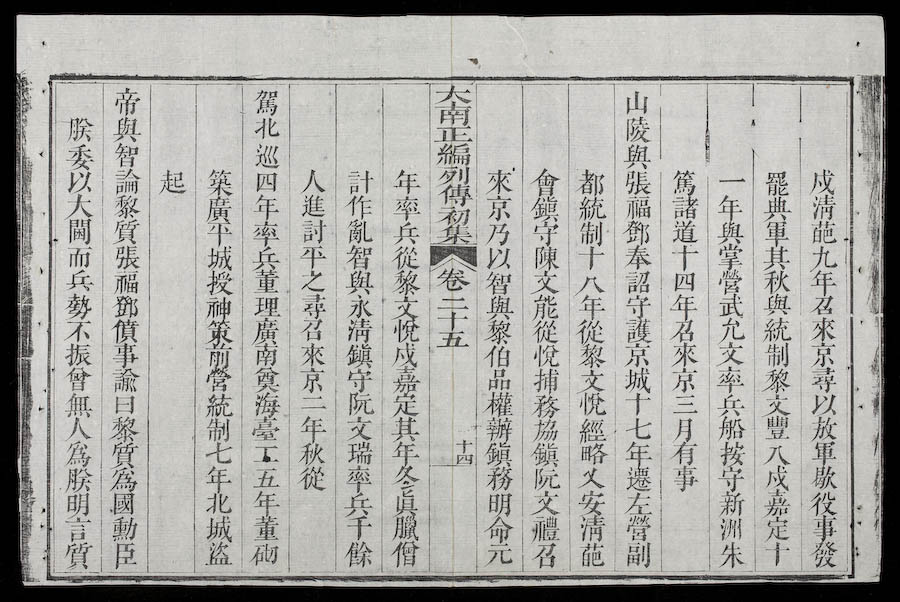 戍淸葩九年召來京尋以放軍歇役事發
罷典軍其秋與統制黎文豐入戍嘉定十
一年與掌營武允文率兵船按守新洲朱
篤諸道十四年召來京三月有事
山陵與張福鄧奉詔守護京城十七年遷左營副
都統制十八年從黎文悅經略乂安淸葩
會鎭守陳文能從悅捕務協鎭阮文禮召
來京乃以智與黎伯品權辦鎭務明命元
大南正編列傳初集 卷二十五 十四
年率兵從黎文悅戍嘉定其年冬眞臘僧
計作亂智與永淸鎭守阮文瑞率兵千餘
人進討平之尋召來京二年秋從
駕北巡四年率兵董理廣南奠海臺工五年董砌
築廣平城授神策前營統制七年北城盜
起
帝與智論黎質張福鄧僨事諭曰黎質爲國勳臣
朕委以大閫而兵勢不振曾無人爲朕明言質